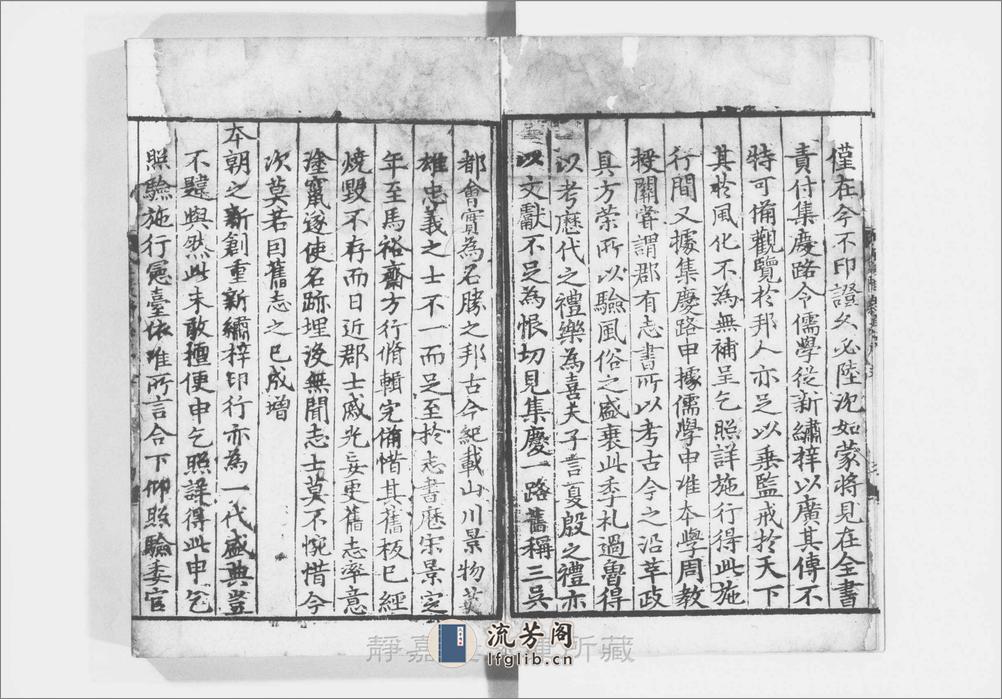 僅在今不印證久必陸沈如蒙將見在全書
責付集慶路令儒學從新繡梓以廣其傳不
特可備觀覽於邦人亦足以垂監戒於天下
其於風化不為無補呈乞照詳施行得此施
行間又據集慶路申據儒學申准本學周教
授關嘗謂郡有志書所以考古今之沿革政
具方策所以驗風俗之盛衰此季札過魯得
以考歷代之禮樂為喜夫子言夏殷之禮亦
以文獻不足為恨切見集慶一路舊稱三吳
都會實為名勝之邦古今紀載山川景物英
雄忠義之士不一而足至於志書歷宋景定
年至馬裕齋方行脩輯完備惜其舊板已經
燒毀不存而日近郡士戚光妄更舊志率意
塗竄遂使名跡埋没無聞志士莫不惋惜今
次莫若因舊志之已成增
本朝之新創重新繡梓印行亦為一代盛典豈
不韙與然此未敢擅便申乞照詳得此申乞
照驗施行憲臺依准所言合下仰照驗委官
靜嘉 所藏
流芳阁
lfglib.cn